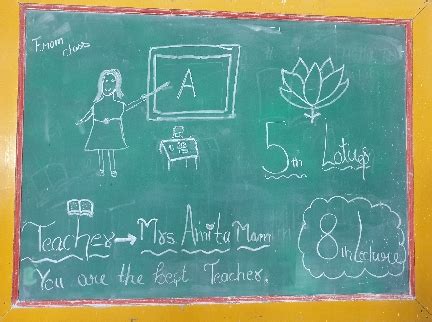 From
class
A
5th Lotus
Teacher → Mrs. Amita Mam
8th Lecture
You are the best Teacher.